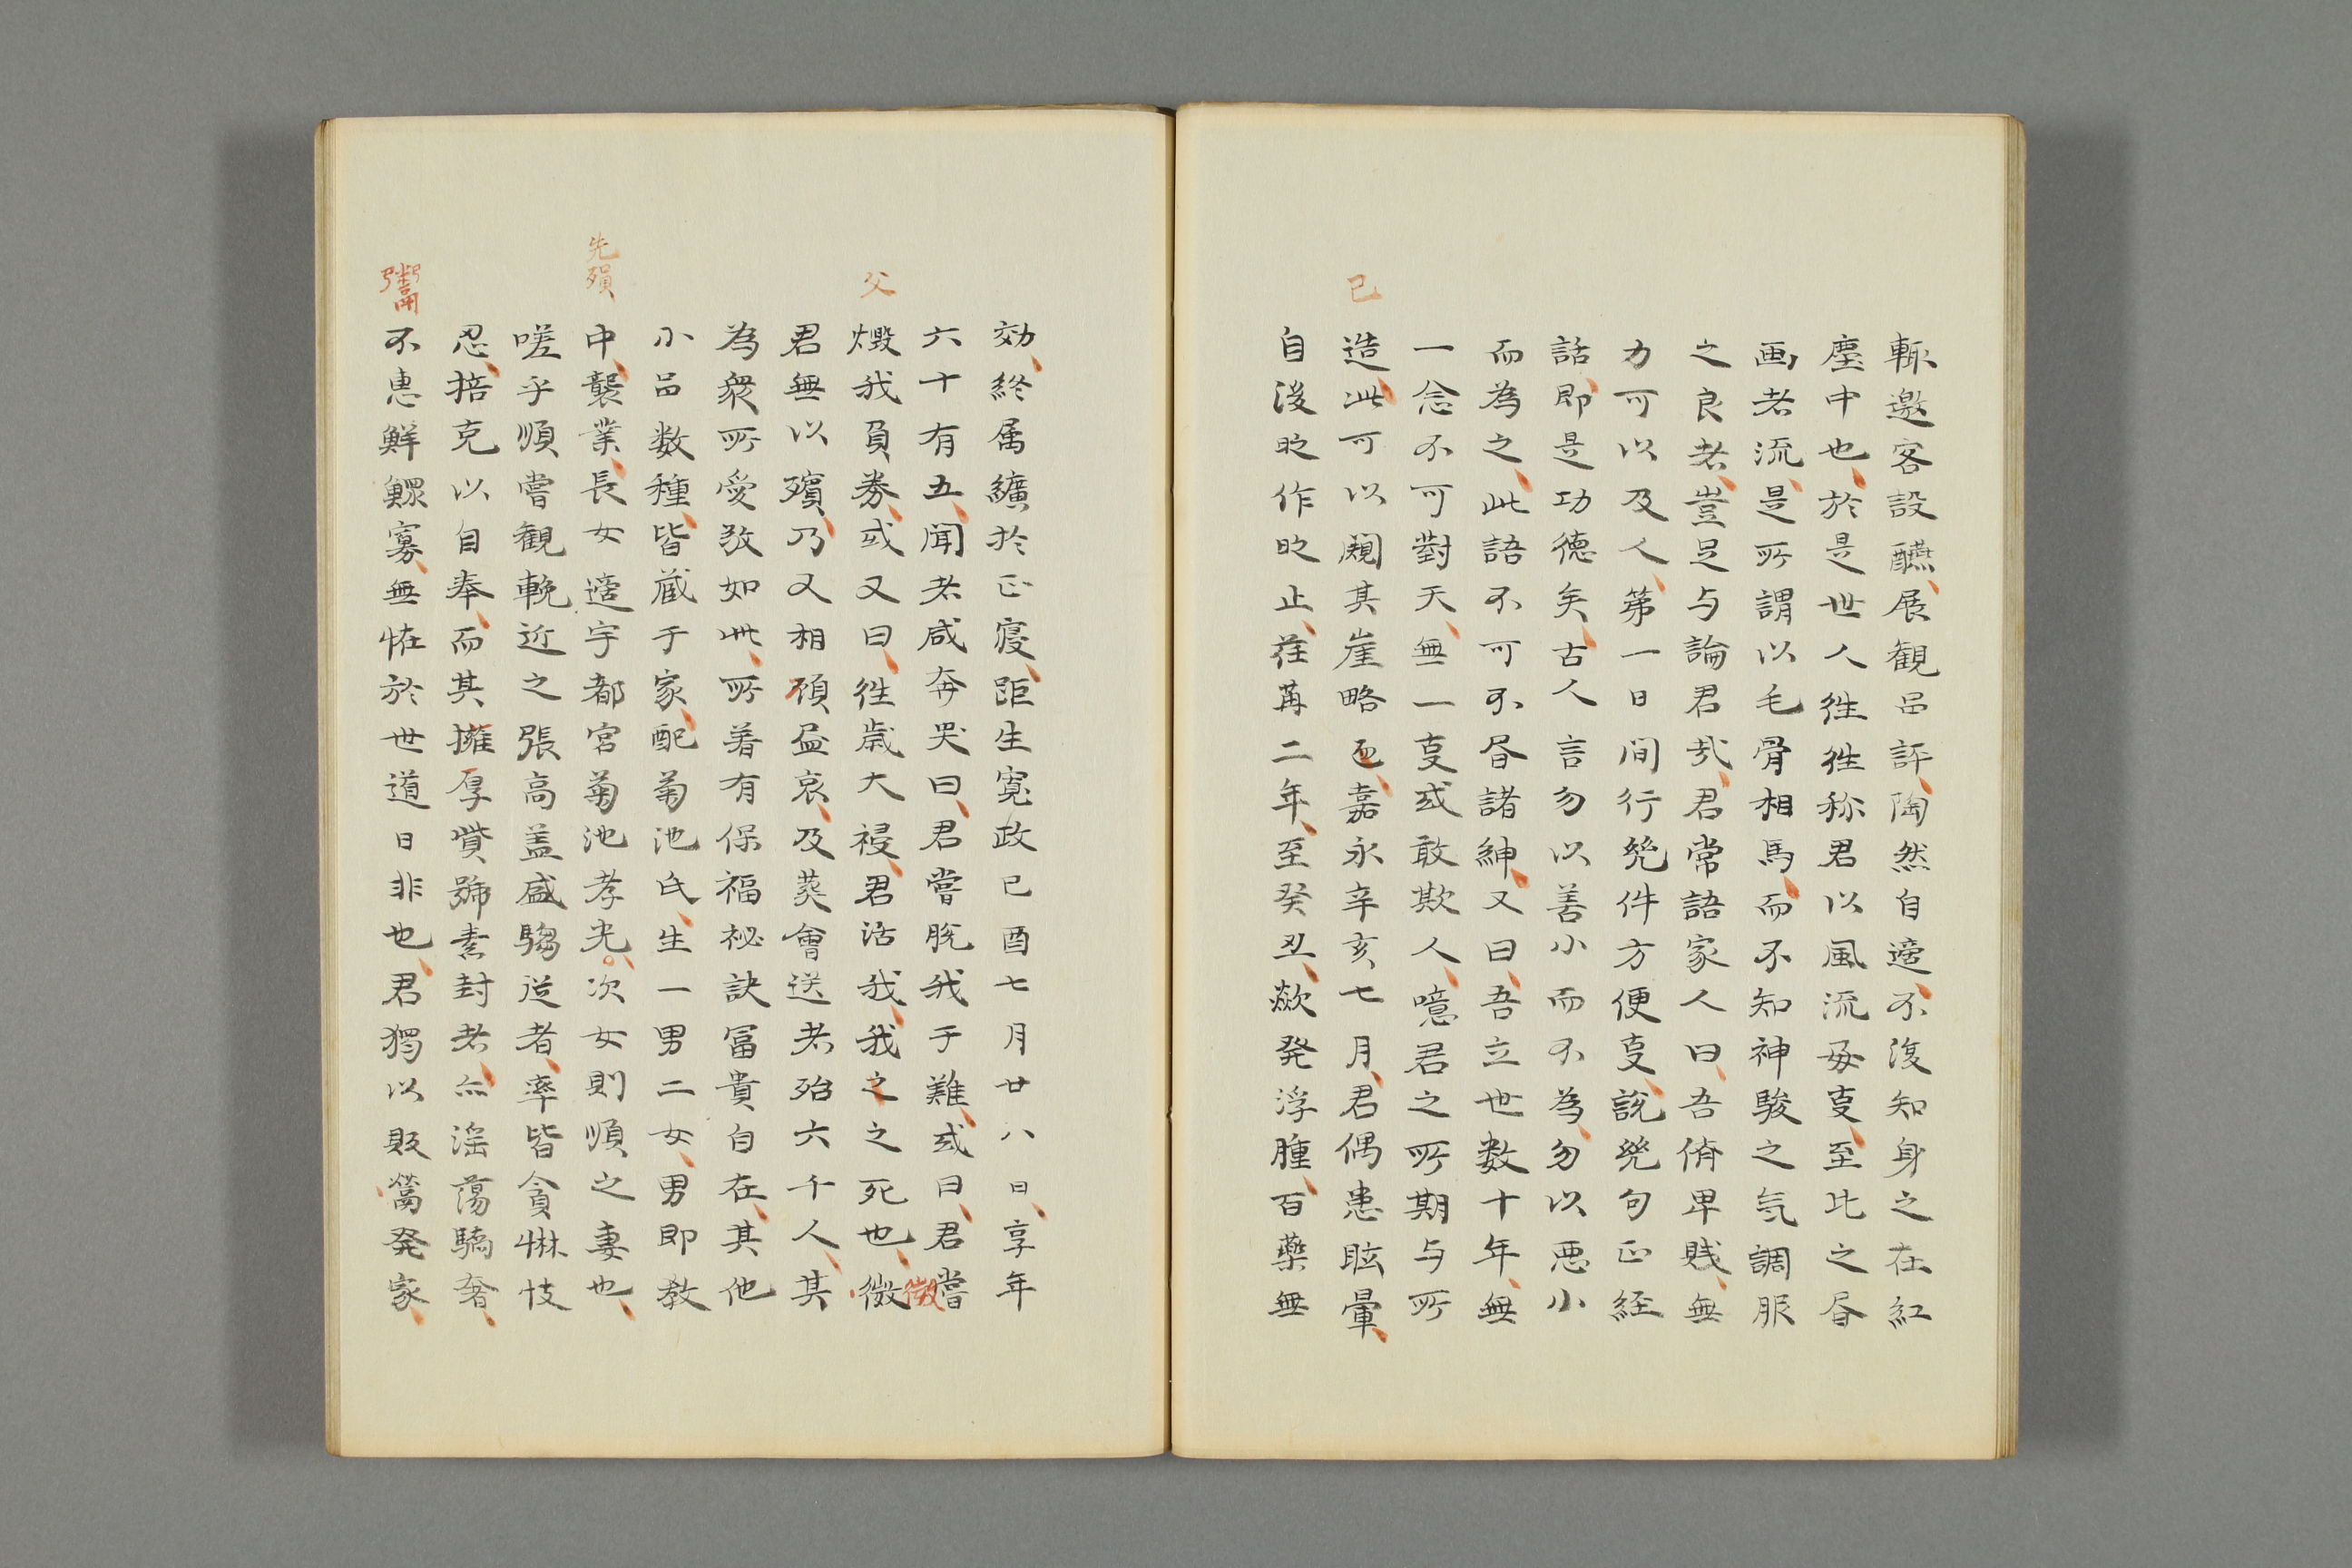 輙邀客設醼展観品評陶然自適不復知身之在紅
塵中也於是世人徃徃称君以風流毎叓至比之昏
画者流是所謂以毛骨相馬而不知神駿之気調服
之良者豈足与論君哉君常語家人曰吾脩卑賎無
力可以及人第一日間行㡬件方便叓説㡬句正経
話即是功徳矣古人言勿以善小而不為勿以悪小
而為之此語不可不昏諸紳又曰吾立世数十年無
一念不可對天無一叓或敢欺人噫君之所期与所
造此可以覘其崖略
嘉永辛亥七月君偶患眩暈
已
自後昵作昵止荏苒二年至癸丑歘発浮腫百薬無
効終属纊於正寝距生寛政已酉七月廿八日享年
六十有五聞者咸奔哭曰君嘗脱我于難或曰君嘗
微
父
燬我負券或又曰徃歳大祲君活我我之之死也微
君無以殯乃又相傾益哀及葵會送者殆六千人其
為衆所愛敬如此所著有保福祕訣冨貴自在其他
小品数種皆蔵于家配菊池氏生一男二女男即教
先殞
中襲業長女適宇都宮菊池孝光次女則順之妻也
嗟乎順嘗観輓近之張高盖盛騶従者率皆貪惏忮
忍掊克以自奉而其擁厚貲号素封者亦淫蕩驕奢
不恵鮮鰥寡無怪於世道日非也君獨以販鬻発家